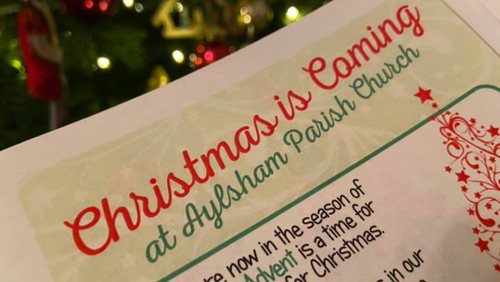 Christmas is Coming
at Aylsham Parish Church
re now in the season of
Advent is a time for
for Christmas.
s in our